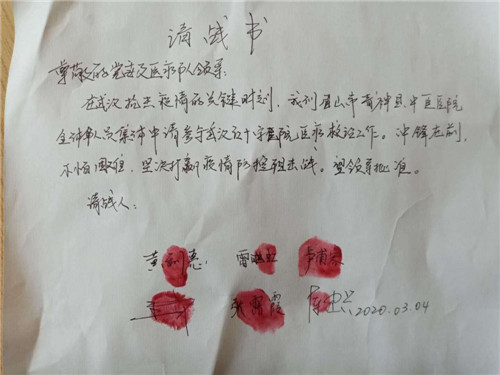 请战书
尊敬的党委及医疗队领导:
在武汉抗击疫情的关键时刻,我们眉山市青神县中医医院
全体队员集体申请参与武汉红十字医院医疗救治工作。冲锋在前,
不怕困难,坚决打赢疫情防控阻击战。望领导批准。
请战人:
黄 雷 尹
张 霞 2020.03.04